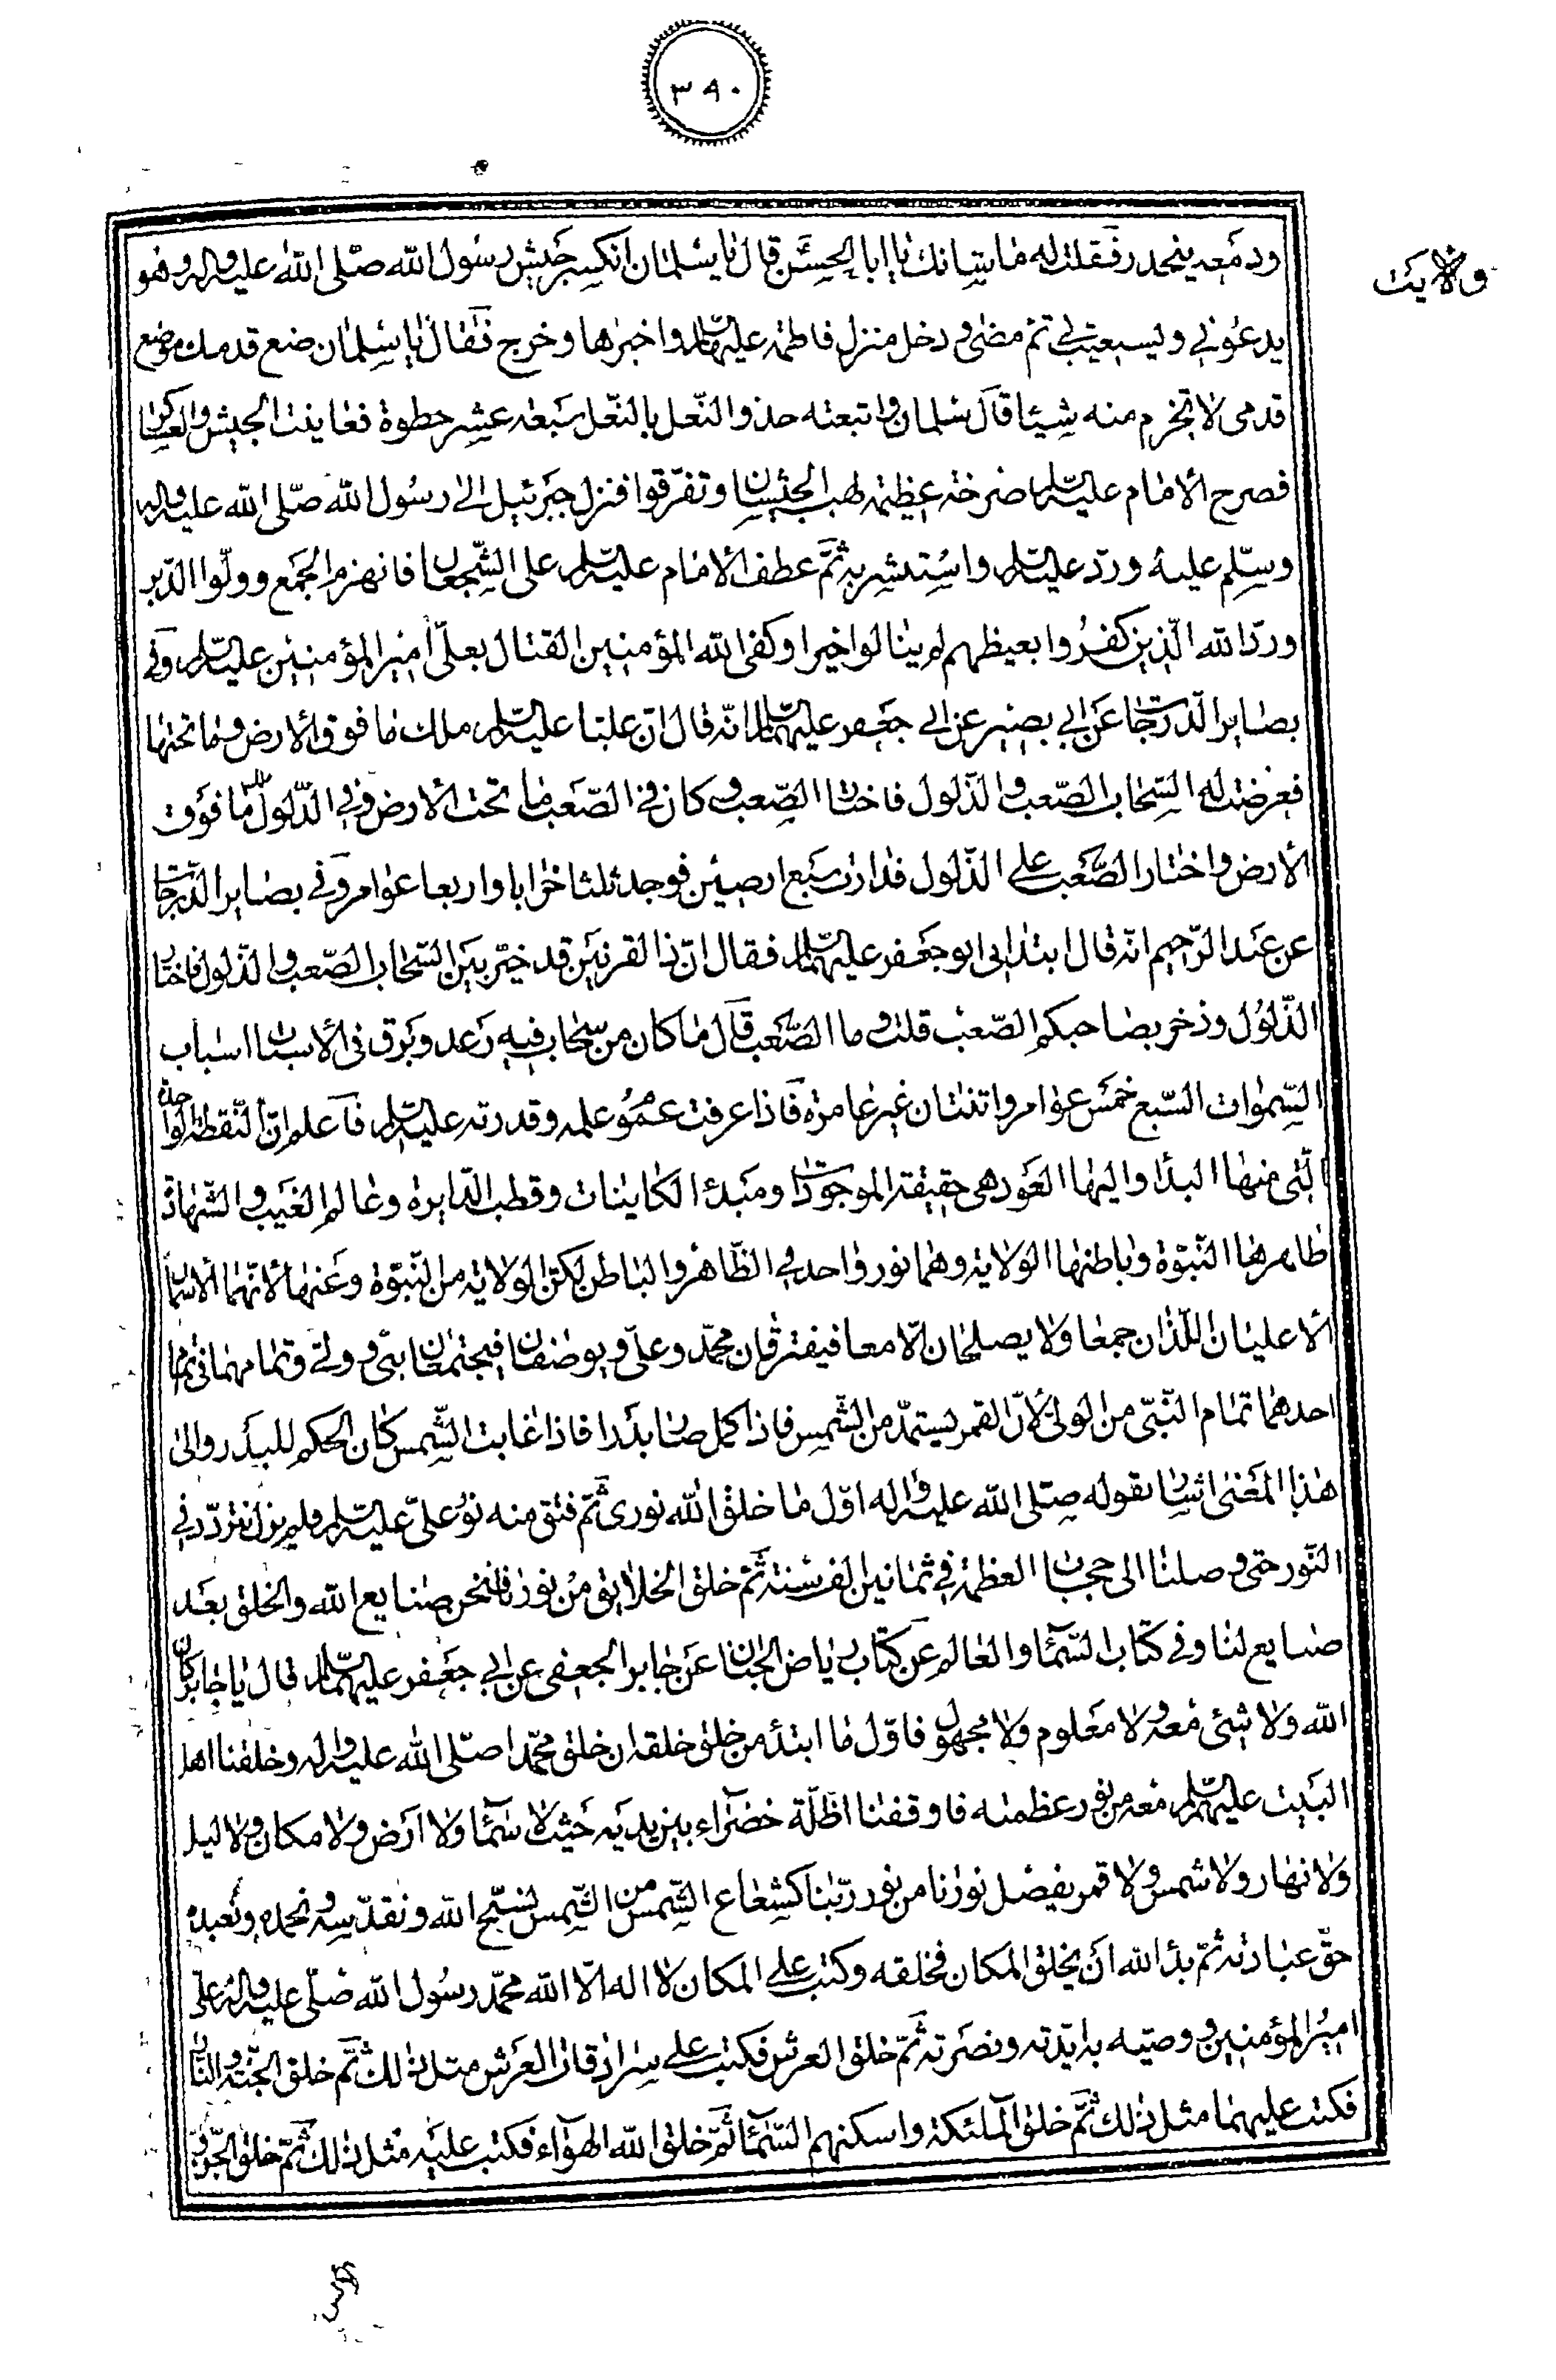 ٣٩٠
ولایت
ودمعه ینحدر فقلت له ما شانك یا ابا الحسن قال یا سلمان انکسر جیش رسول الله صلّی الله علیه واله وهو
یدعونی ویستغیث بی ثم مضی ودخل منزل فاطمة علیها السلام واخبرها وخرج فقال یا سلمان ضع قدمك موضع
قدمی لا تخرم منه شیئا قال سلمان واتبعته حذو النّعل بالنّعل سبعة عشر خطوة فعاینت الجیش والعساکر
فصرخ الامام علیه السلام صرخة عظیمة لهب الجیشان وتفرّقوا فنزل جبرئیل الی رسول الله صلّی الله علیه واله
وسلّم علیه وردّ علیه السلام واستبشر به ثمّ عطف الامام علیه السلام علی الشّجعان فانهزم الجمع وولّوا الدّبر
وردّ الله الّذین کفروا بغیظهم لم ینالوا خیرا وکفی الله المؤمنین القتال بعلیّ امیر المؤمنین علیه السلام، وفی
بصایر الدّرجات عن ابی بصیر عن ابی جعفر علیهما السلام انّه قال انّ علیا علیه السلام ملك ما فوق الارض وما تحتها
فعرضت له السّحابان الصّعب والذّلول فاختار الصّعب وکان فی الصّعب ما تحت الارض وفی الذّلول ما فوق
الارض واختار الصّعب علی الذّلول فدارت سبع ارضین فوجد ثلثا خرابا واربعا عوامر وفی بصایر الدّرجات
عن عبد الرّحیم انّه قال ابتدانی ابو جعفر علیهما السلام فقال انّ ذا القرنین قد خیّر بین السّحابین الصّعب والذّلول فاختار
الذّلول وذخر بصاحبکم الصّعب قلت وما الصّعب قال ما کان من سحاب فیه رعد وبرق فی الاسباب اسباب
السّموات السّبع خمس عوامر واثنتان غیر عامرة فاذا عرفت عموم علمه وقدرته علیه السلام فاعلم انّ النّقطة الواحدة
الّتی منها البدأ والیها العود هی حقیقة الموجودات ومبدء الکاینات وقطب الدّایرة وعالم الغیب والشّهادة
ظاهرها النّبوّة وباطنها الولایة وهما نور واحد فی الظّاهر والباطن لکنّ الولایة من النّبوّة وعنها لانّهما الاسمان
الاعلیان اللّذان جمعا ولا یصلحان الّا معا فیفترقان محمّد وعلیّ ویوضفان فیجتمعان نبیّ وولیّ وتمامهما فی تمام
احدهما تمام النّبیّ من الولیّ لانّ القمر یستمدّ من الشّمس فاذا کمل صار بدرا فاذا غابت الشّمس کان الحکم للبدر والی
هذا المعنی اشار بقوله صلّی الله علیه واله اوّل ما خلق الله نوری ثمّ فتق منه نور علیّ علیه السلام فلم یزل نتردّد فی
النّور حتی وصلنا الی حجاب العظمة فی ثمانین الف سنة ثمّ خلق الخلایق من نورنا فنحن صنایع الله والخلق بعد
صنایع لنا وفی کتاب السّماء والعالم عن کتاب ریاض الجنان عن جابر الجعفی عن ابی جعفر علیهما السلام قال یا جابر کان
الله ولا شیء معه ولا معلوم ولا مجهول فاوّل ما ابتدء من خلق خلقه ان خلق محمّدا صلّی الله علیه واله وخلقنا اهل
البیت علیهم السلام معه من نور عظمته فاوقفنا اظلّة خضراء بین یدیه حیث لا سماء ولا ارض ولا مکان ولا لیل
ولا نهار ولا شمس ولا قمر یفصل نورنا من نور ربّنا کشعاع الشّمس من الشّمس نسبّح الله ونقدّسه ونحمده ونعبده
حقّ عبادته ثمّ بدأ الله ان یخلق المکان فخلقه وکتب علی المکان لا اله الّا الله محمّد رسول الله صلّی علیه واله علیّ
امیر المؤمنین ووصیّه به ایّدته ونصرته ثمّ خلق العرش فکتب علی سرادقات العرش مثل ذلك ثمّ خلق الجنّة والنار
فکتب علیهما مثل ذلك ثمّ خلق الملئکة واسکنهم السّماء ثمّ خلق الله الهواء فکتب علیه مثل ذلك ثمّ خلق الجنّ